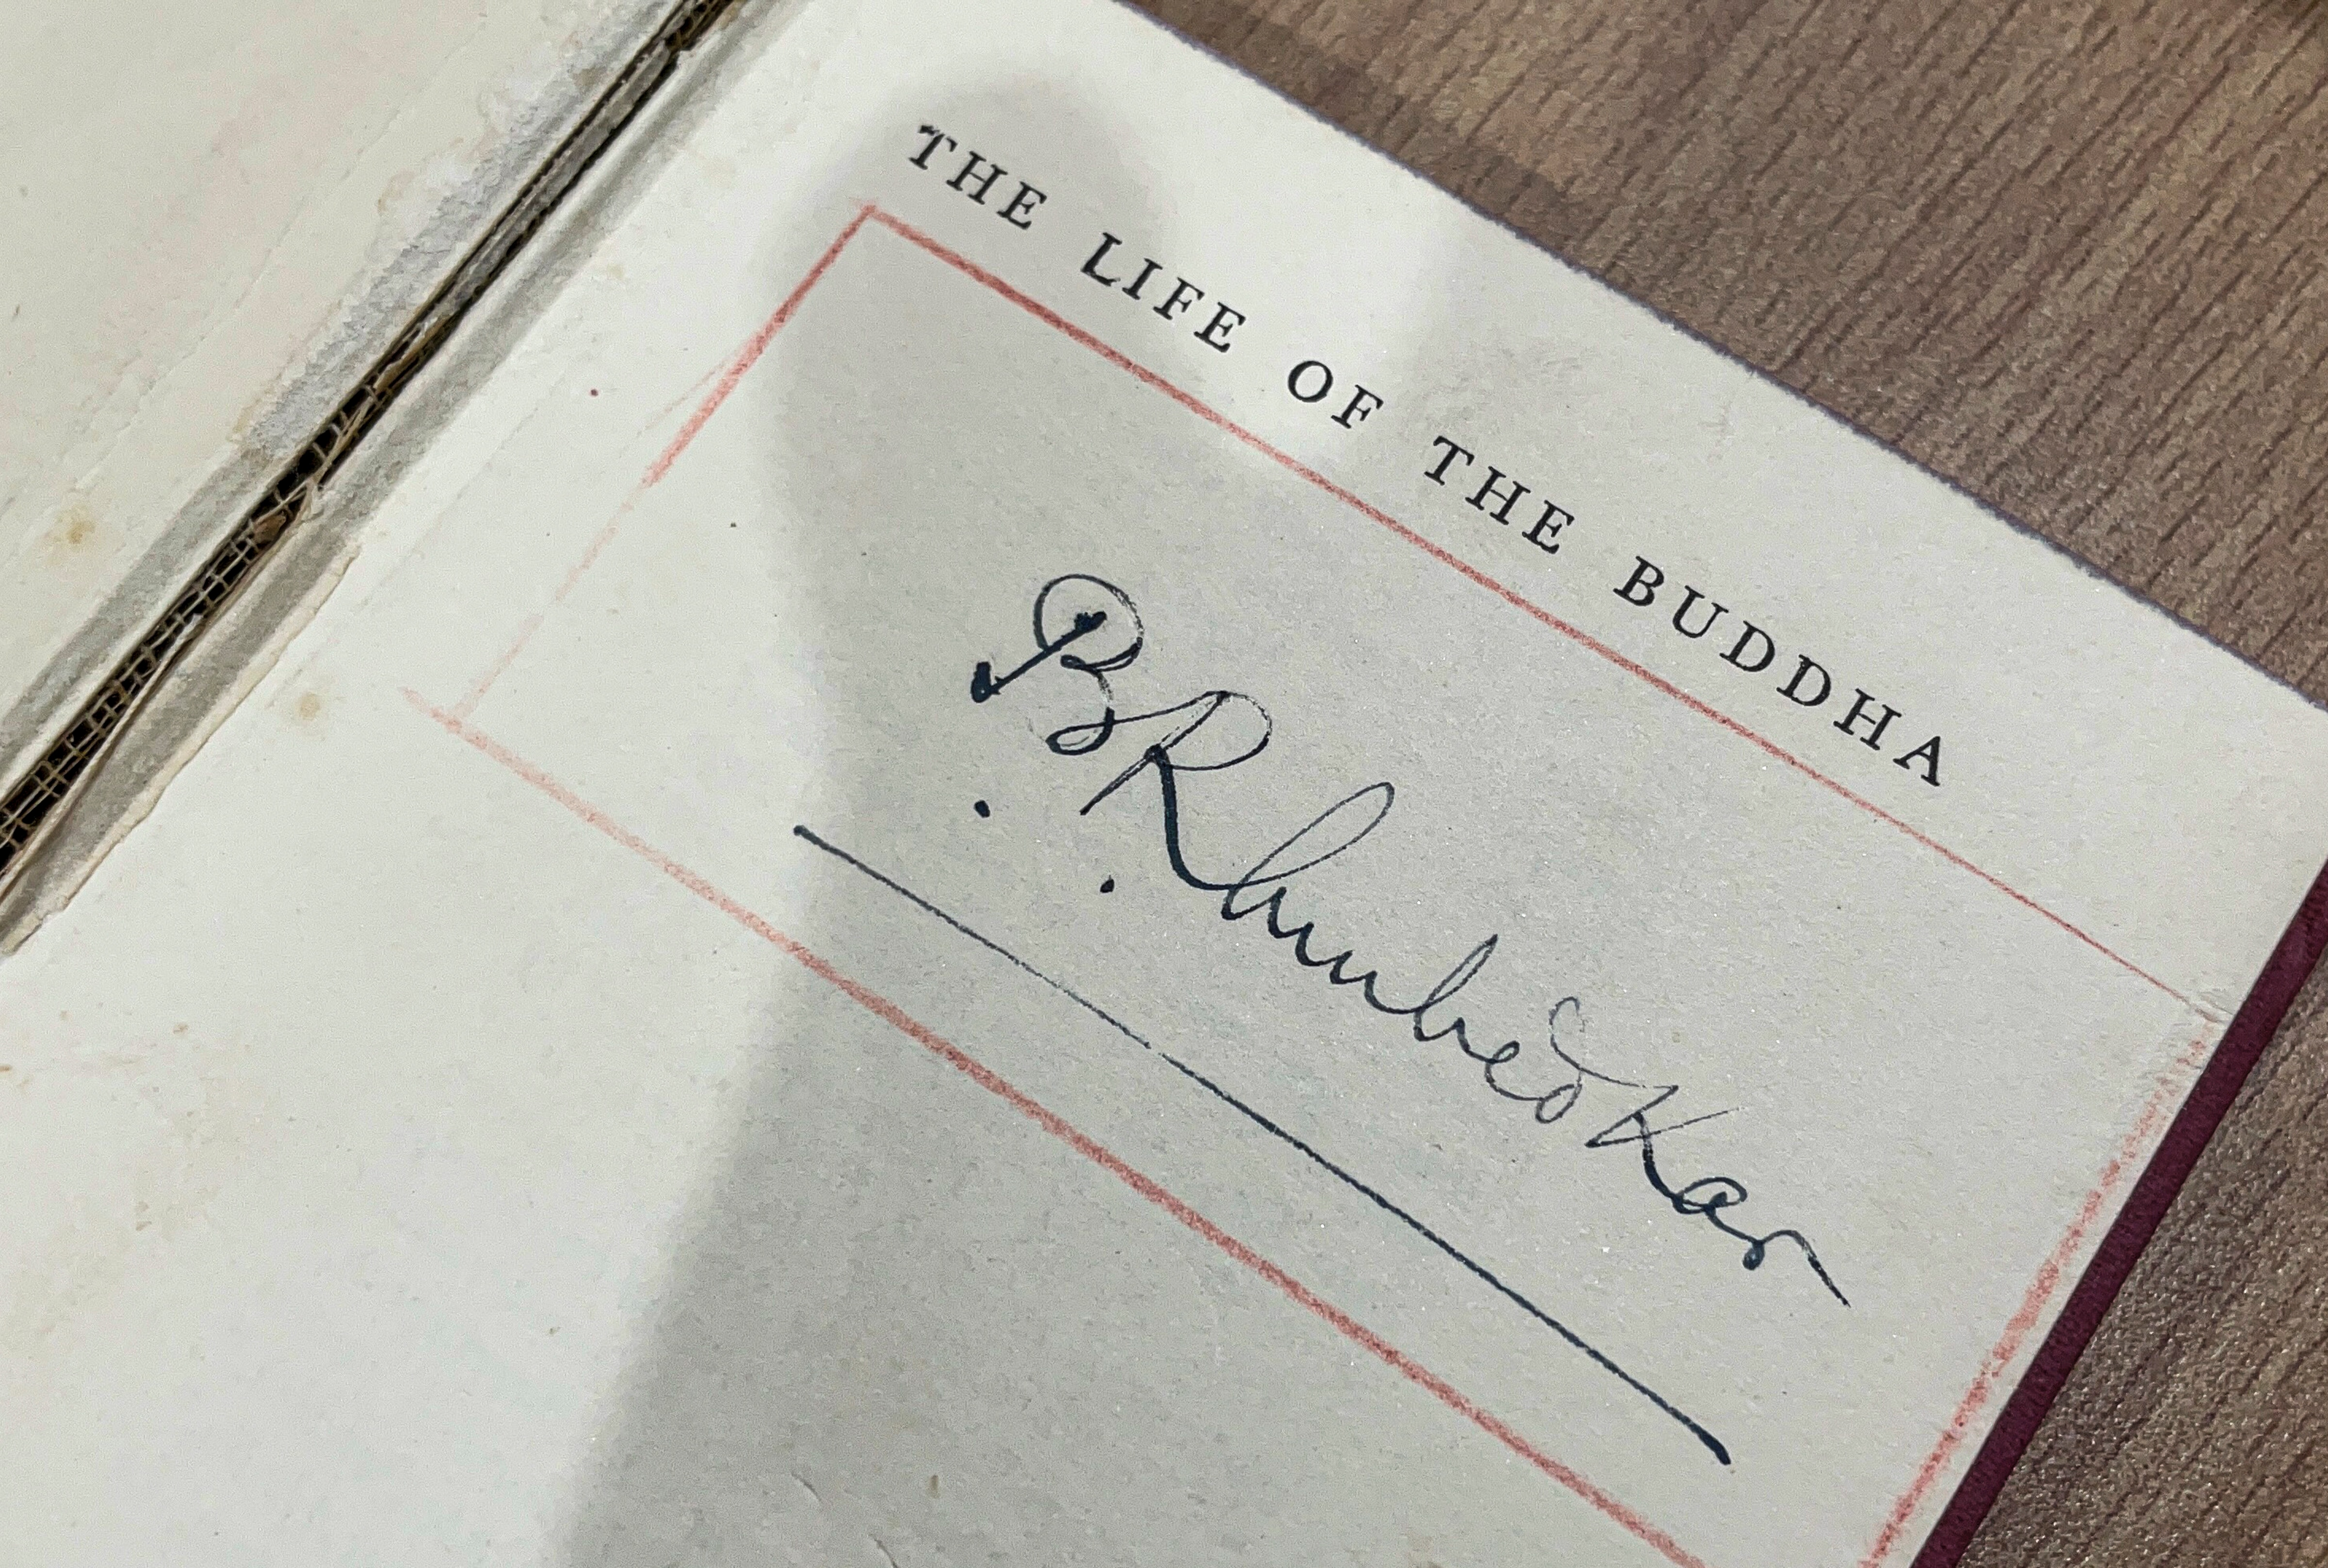 THE LIFE OF THE BUDDHA
B. R. Ambedkar